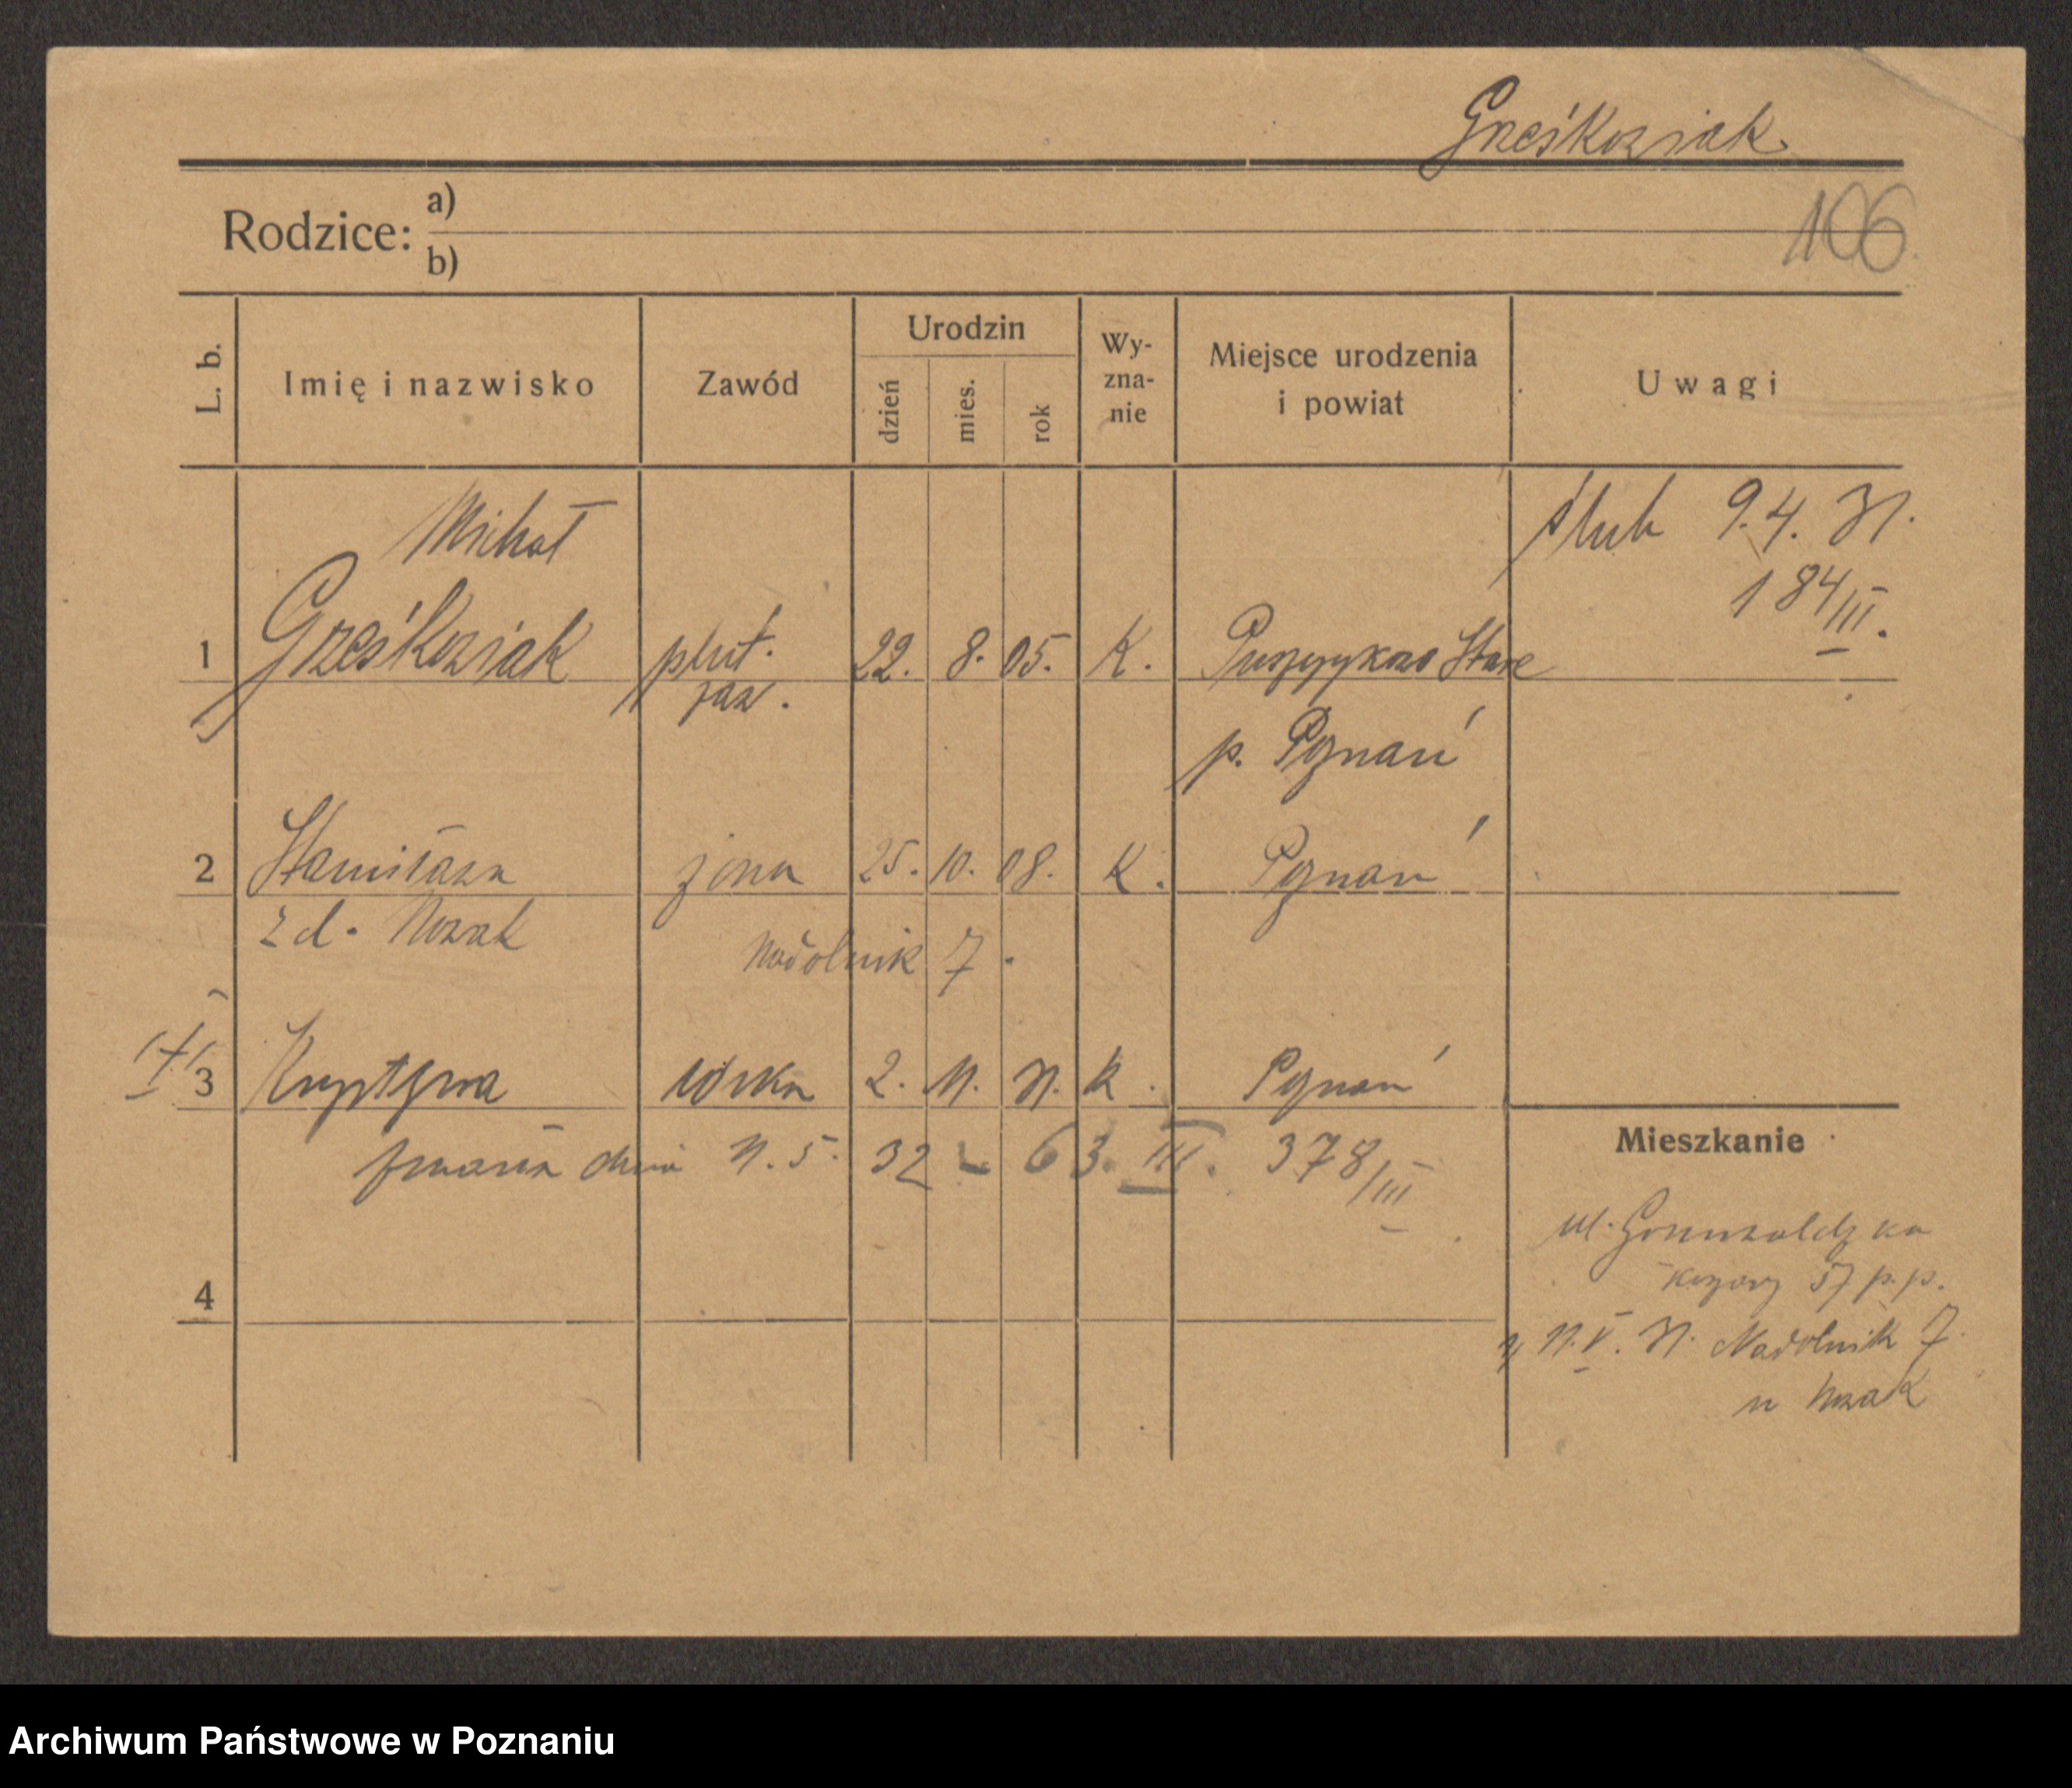 Grześkowiak
Rodzice: a)
b)
106
L. b.
Imię i nazwisko
Zawód
Urodzin
dzień
mies.
rok
Wy-
zna-
nie
Miejsce urodzenia
i powiat
Uwagi
Michał
ślub 9.4.31.
184/III.
1 Grześkowiak plut. 22. 8. 05. K. Puszczykowo Stare
zaw.
p. Poznań
2 Stanisława żona 25. 10. 08. K. Poznań
z d. Nowak
Nadolnik 7.
3 Krystyna córka 2. 11. 31. K. Poznań
zmarła dnia 11.5. 32 - 63. III. 378/III
Mieszkanie
ul. Grunwaldzka
koszary 57 p.p.
4
11.V.31. Nadolnik 7.
u Nowak
Archiwum Państwowe w Poznaniu